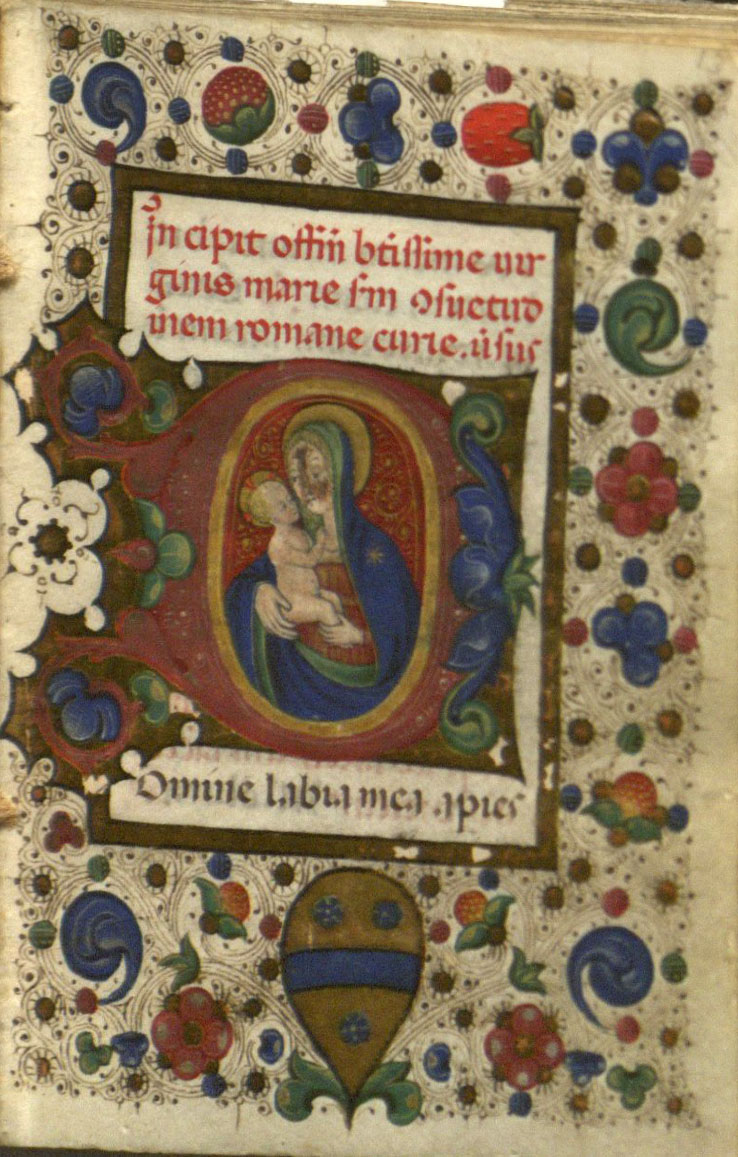 Jn cipit offiñ btissime uir
ginis marie sm ꝯsuetud
inem romane curie. usus
Omine labia mea apies